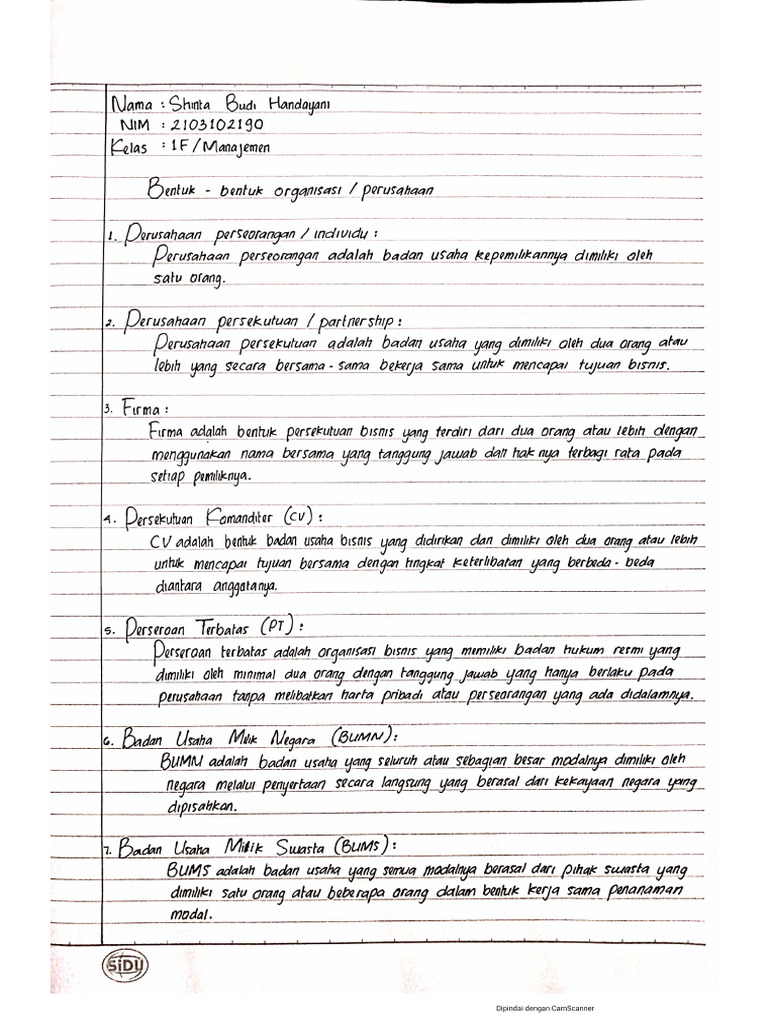 Nama : Shinta Budi Handayani
NIM : 2103102190
Kelas : 1F / Manajemen
Bentuk - bentuk organisasi / perusahaan
1. Perusahaan perseorangan / individu :
Perusahaan perseorangan adalah badan usaha kepemilikannya dimiliki oleh
satu orang.
2. Perusahaan persekutuan / partnership :
Perusahaan persekutuan adalah badan usaha yang dimiliki oleh dua orang atau
lebih yang secara bersama - sama bekerja sama untuk mencapai tujuan bisnis.
3. Firma :
Firma adalah bentuk persekutuan bisnis yang terdiri dari dua orang atau lebih dengan
menggunakan nama bersama yang tanggung jawab dan hak nya terbagi rata pada
setiap pemiliknya.
4. Persekutuan Komanditer (CV) :
CV adalah bentuk badan usaha bisnis yang didirikan dan dimiliki oleh dua orang atau lebih
untuk mencapai tujuan bersama dengan tingkat keterlibatan yang berbeda - beda
diantara anggotanya.
5. Perseroan Terbatas (PT) :
Perseroan terbatas adalah organisasi bisnis yang memiliki badan hukum resmi yang
dimiliki oleh minimal dua orang dengan tanggung jawab yang hanya berlaku pada
perusahaan tanpa melibatkan harta pribadi atau perseorangan yang ada didalamnya.
6. Badan Usaha Milik Negara (BUMN) :
BUMN adalah badan usaha yang seluruh atau sebagian besar modalnya dimiliki oleh
negara melalui penyertaan secara langsung yang berasal dari kekayaan negara yang
dipisahkan.
7. Badan Usaha Milik Swasta (BUMS) :
BUMS adalah badan usaha yang semua modalnya berasal dari pihak swasta yang
dimiliki satu orang atau beberapa orang dalam bentuk kerja sama penanaman
modal.
SiDU
Dipindai dengan CamScanner